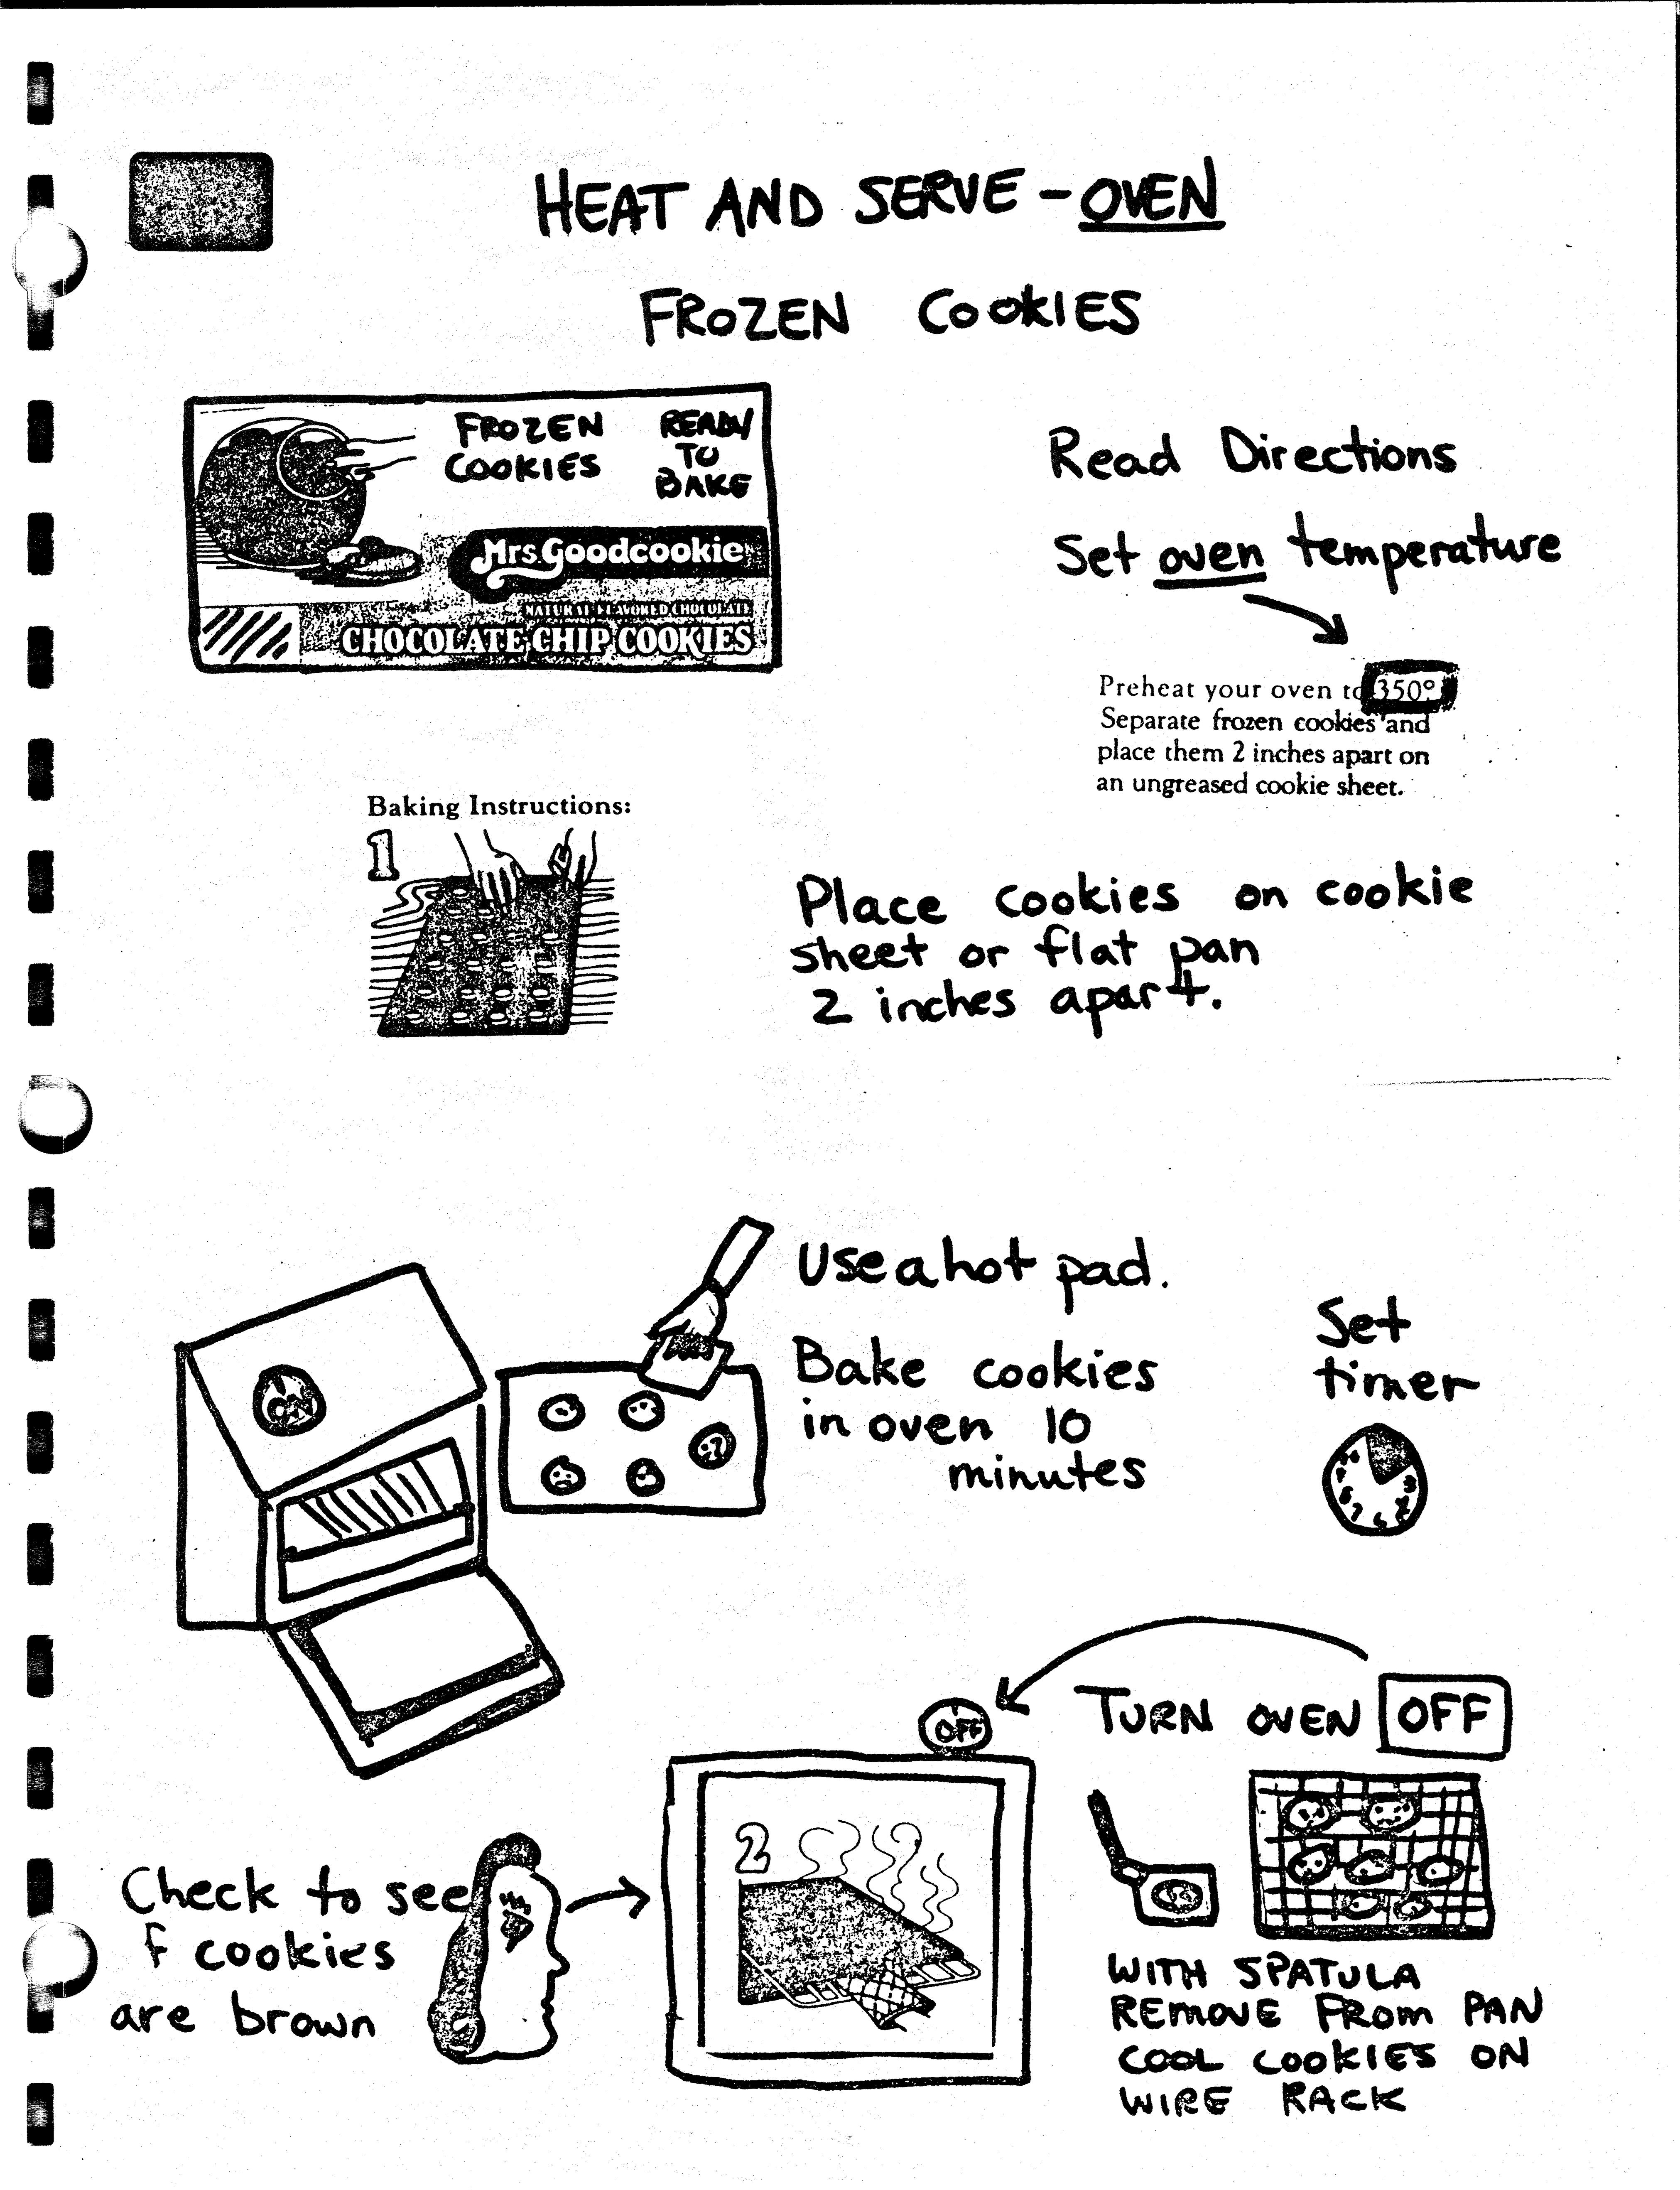 HEAT AND SERVE - OVEN
FROZEN COOKIES
FROZEN
COOKIES
READY
TO
BAKE
Mrs. Goodcookie
NATURAL FLAVORED CHOCOLATE
CHOCOLATE CHIP COOKIES
Read Directions
Set oven temperature
Preheat your oven to 350°
Separate frozen cookies and
place them 2 inches apart on
an ungreased cookie sheet.
Baking Instructions:
1
Place cookies on cookie
sheet or flat pan
2 inches apart.
Use a hot pad.
Bake cookies
in oven 10
minutes
Set
timer
ON
TURN OVEN OFF
OFF
2
Check to see
f cookies
are brown
WITH SPATULA
REMOVE FROM PAN
COOL COOKIES ON
WIRE RACK